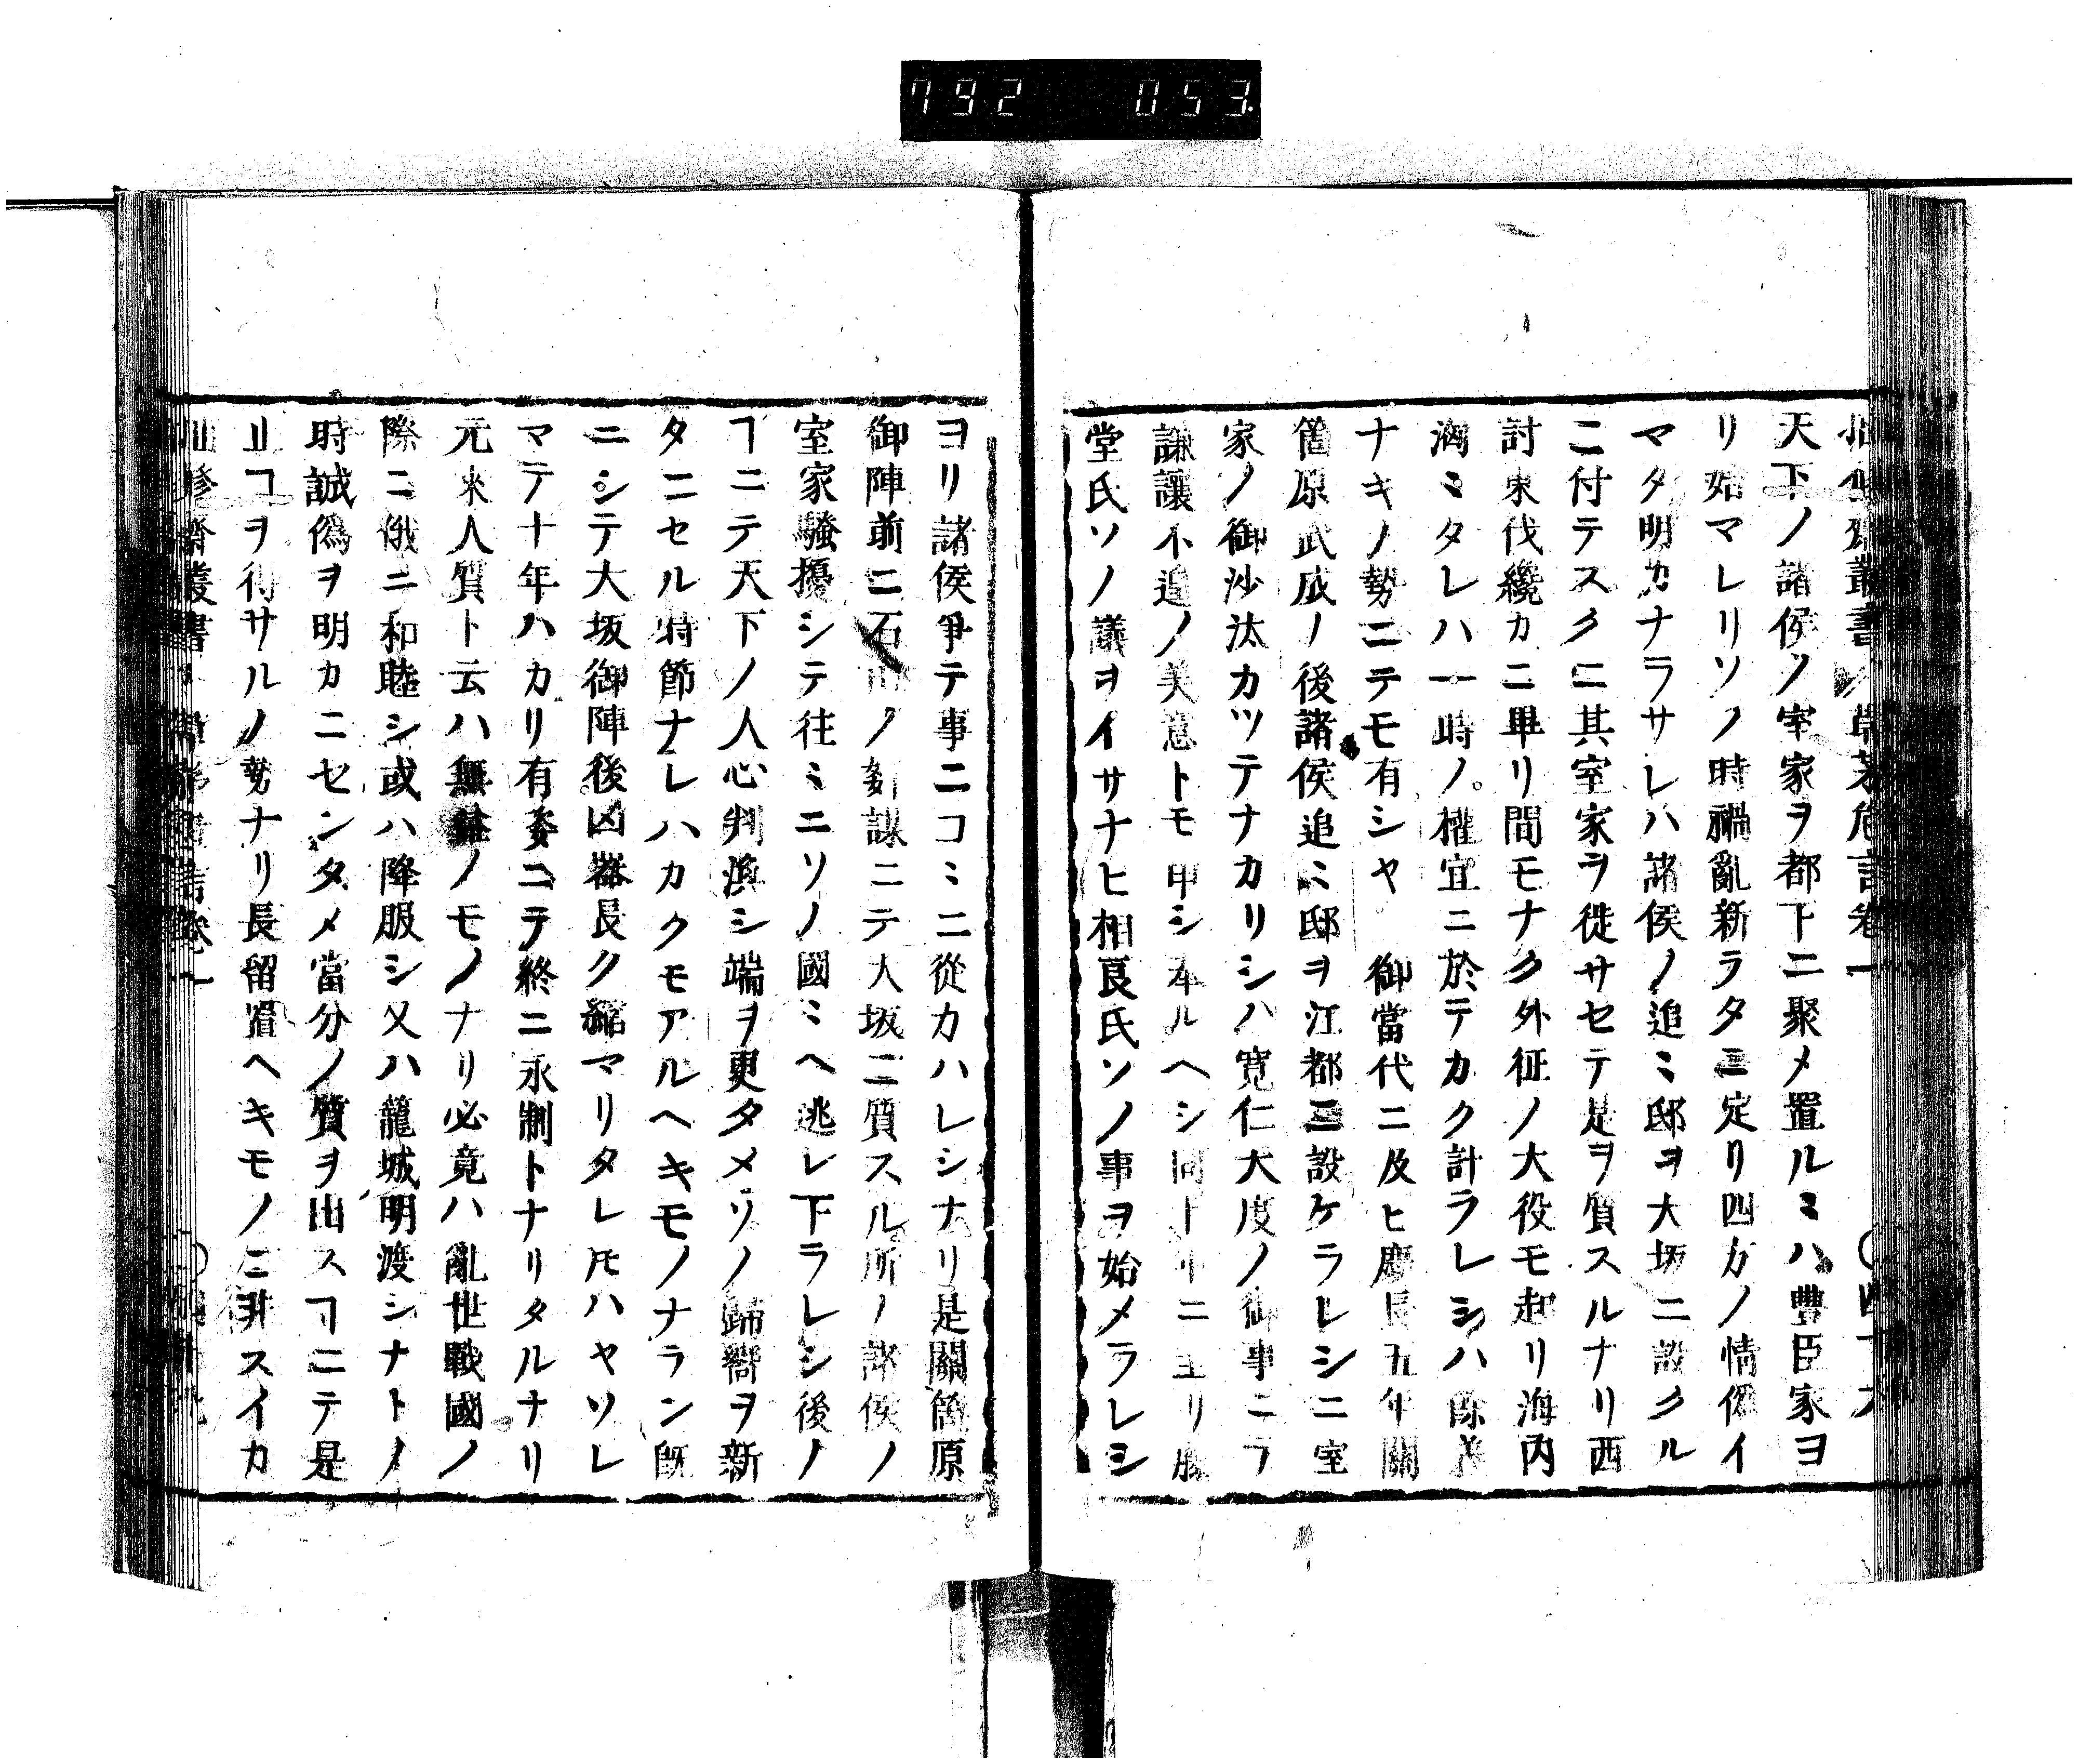 792 053
叢書 草茅危言卷一
天下ノ諸侯ノ室家ヲ都下ニ聚メ置ルミハ豊臣家ヨ
リ始マレリソノ時禍亂新ラタニ定リ四方ノ情僞イ
マタ明カナラサレハ諸侯ノ追ミ邸ヲ大坂ニ設クル
ニ付テスクニ其室家ヲ徙サセテ是ヲ質スルナリ西
討東伐纔カニ畢リ間モナク外征ノ大役モ起リ海内
洶ミタレハ一時ノ權宜ニ於テカク計ラレシハ餘義
ナキノ勢ニテモ有シヤ 御當代ニ及ヒ慶長五年關
箇原武成ノ後諸侯追ミ邸ヲ江都ニ設ケラレシニ室
家ノ御沙汰カツテナカリシハ寛仁大度ノ御事ニヿ
謙讓不遑ノ美意トモ申シ奉ルヘシ同十年ニ至リ藤
堂氏ソノ議ヲイサナヒ相良氏ソノ事ヲ始メラレシ
ヨリ諸侯爭テ事ニコミニ從カハレシナリ是關箇原
御陣前ニ石田ノ姧謀ニテ大坂ニ質スル所ノ諸侯ノ
室家騷擾シテ往ミニソノ國ミヘ逃レ下ラレシ後ノ
ヿニテ天下ノ人心判渙シ端ヲ更タメソノ歸嚮ヲ新
タニセル時節ナレハカクモアルヘキモノナラン既
ニシテ大坂御陣後凶器長ク韜マリタレ𪜈ハヤソレ
マテ十年ハカリ有來ニテ終ニ永制トナリタルナリ
元來人質ト云ハ無益ノモノナリ必竟ハ亂世戰國ノ
際ニ俄ニ和睦シ或ハ降服シ又ハ籠城明渡シナトノ
時誠僞ヲ明カニセンタメ當分ノ質ヲ出スヿニテ是
止コヲ得サルノ勢ナリ長留置ヘキモノニ非スイカ
叢書